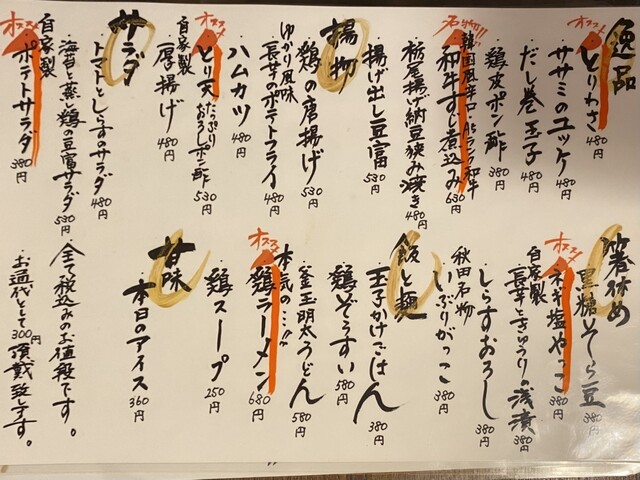 逸品
オススメ
とりわさ 480円
ササミのユッケ 480円
だし巻玉子 480円
鶏皮ポン酢 380円
名物!!
韓国風辛口 A5ランク和牛
和牛すじ煮込み 630円
栃尾揚げ納豆狭み焼き 480円
揚げ出し豆富 530円
揚物
鶏の唐揚げ 530円
ゆかり風味
長芋のポテトフライ 480円
ハムカツ 480円
オススメ
とり天 たっぷりおろしポン酢 530円
自家製
厚揚げ 480円
サラダ
トマトとしらすのサラダ 480円
海苔と蒸し鶏の豆富サラダ 530円
オススメ
自家製
ポテトサラダ 380円
箸休め
黒糖そら豆 380円
オススメ
ネギ塩やっこ 380円
自家製
長芋ときゅうりの浅漬 380円
しらすおろし 380円
秋田名物
いぶりがっこ 380円
飯と麺
玉子かけごはん 380円
鶏ぞうすい 580円
釜玉明太うどん 580円
本気の…!!
オススメ
鶏ラーメン 680円
鶏スープ 250円
甘味
本日のアイス 360円
全て税込みのお値段です。
お通代として300円頂戴致します。